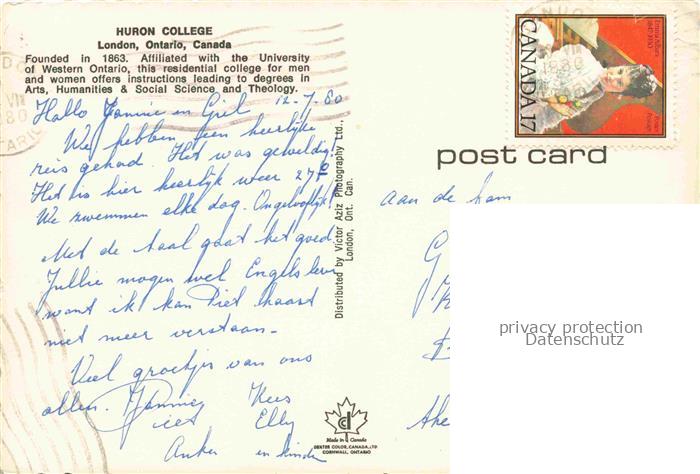 HURON COLLEGE
London, Ontario, Canada
Founded in 1863. Affiliated with the University
of Western Ontario, this residential college for men
and women offers instructions leading to degrees in
Arts, Humanities & Social Science and Theology.
12-7-80
Hallo Jannie en Giel
We hebben een heerlijke
reis gehad. Het was geweldig!
Het is hier heerlijk weer 27°
We zwemmen elke dag. Ongelooflijk!
Met de taal gaat het goed
Jullie mogen wel Engels leren
want ik kan Piet haast
niet meer verstaan-
Veel groetjes van ons
allen. Kees
Piet Elly
Anker en kinder
Distributed by Victor Aziz Photography Ltd.,
London, Ont. Can.
Made in Canada
DEXTER COLOR, CANADA, LTD
CORNWALL, ONTARIO
CANADA 17
Emma Albani
1847-1930
Postes
Postage
post card
aan de fam
privacy protection
Datenschutz